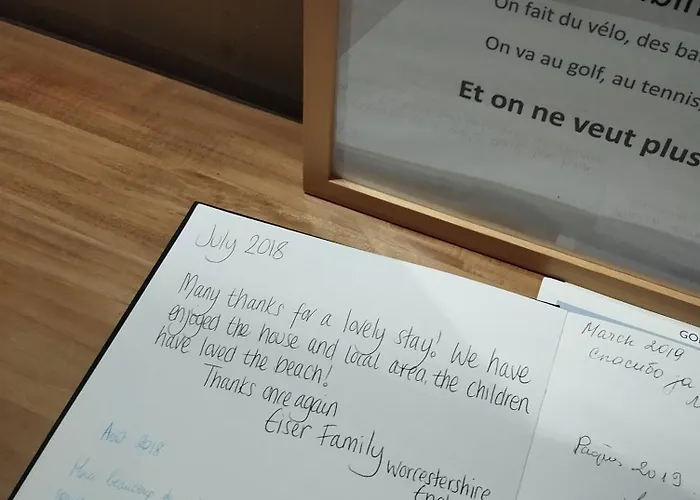 On fait du vélo, des
On va au golf, au tennis,
Et on ne veut plus
July 2018
Many thanks for a lovely stay! We have
enjoyed the house and local area, the children
have loved the beach!
Thanks once again
Eiser Family
Worcestershire
Août 2018
beaucoup
GO
March 2019
Спасибо за
Pâques 2019